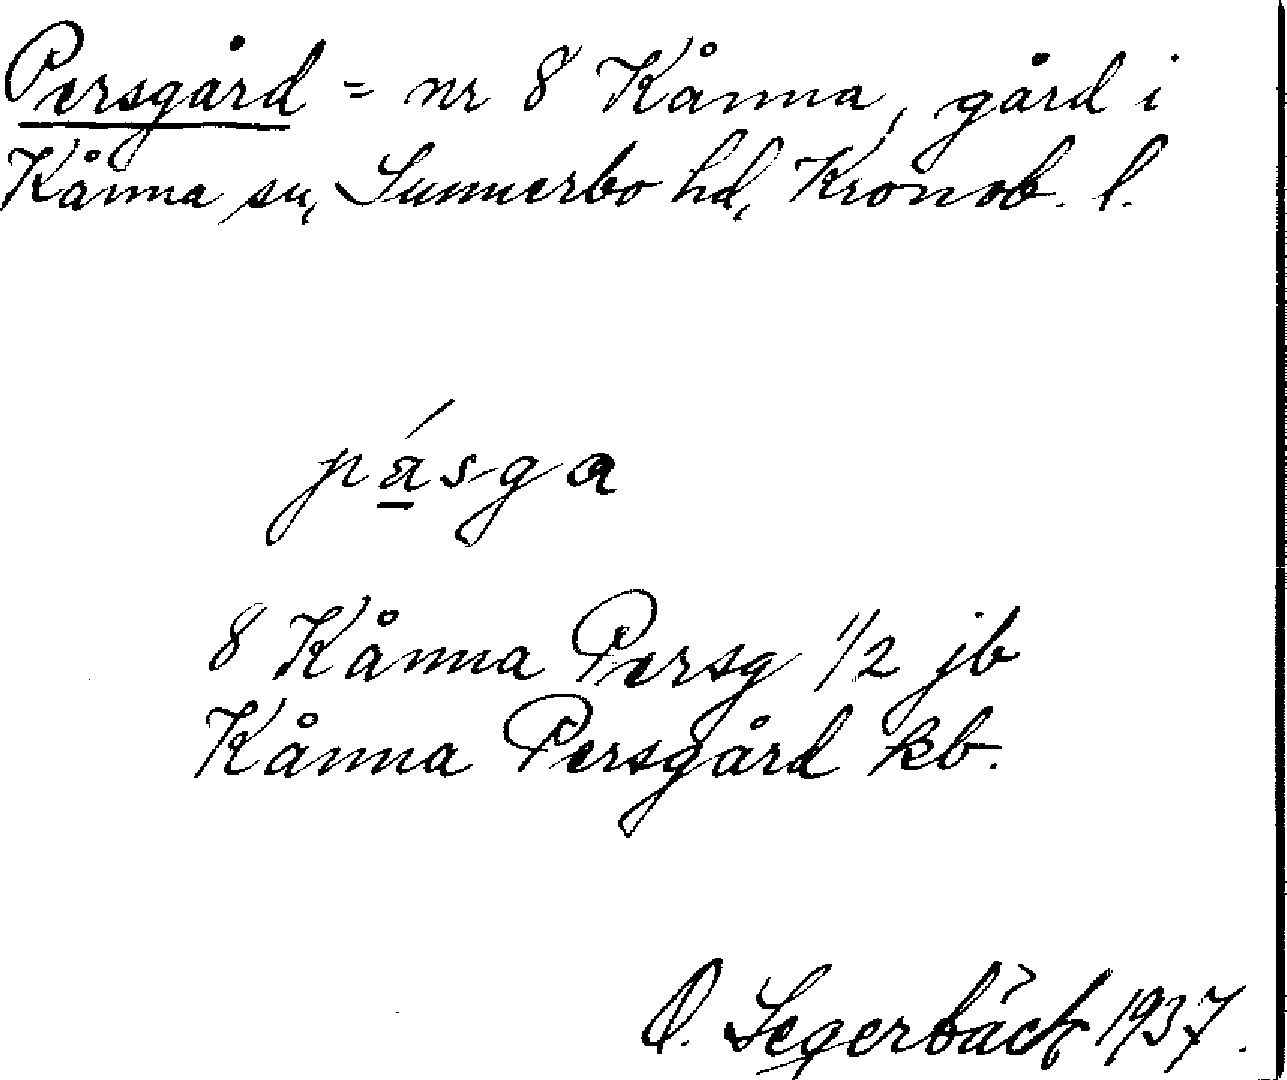 Persgård = nr 8 Kånna, gård i
Kånna sn, Sunnerbo hd, Kronob. l.
pásga
8 Kånna Persg 1/2 jb
Kånna Persgård kb.
O. Segerbäck 1937.